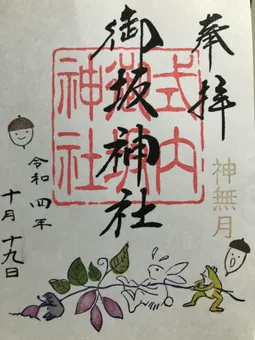 奉拝
神無月
式内
神社
御坂神社
令和四年
十月十九日